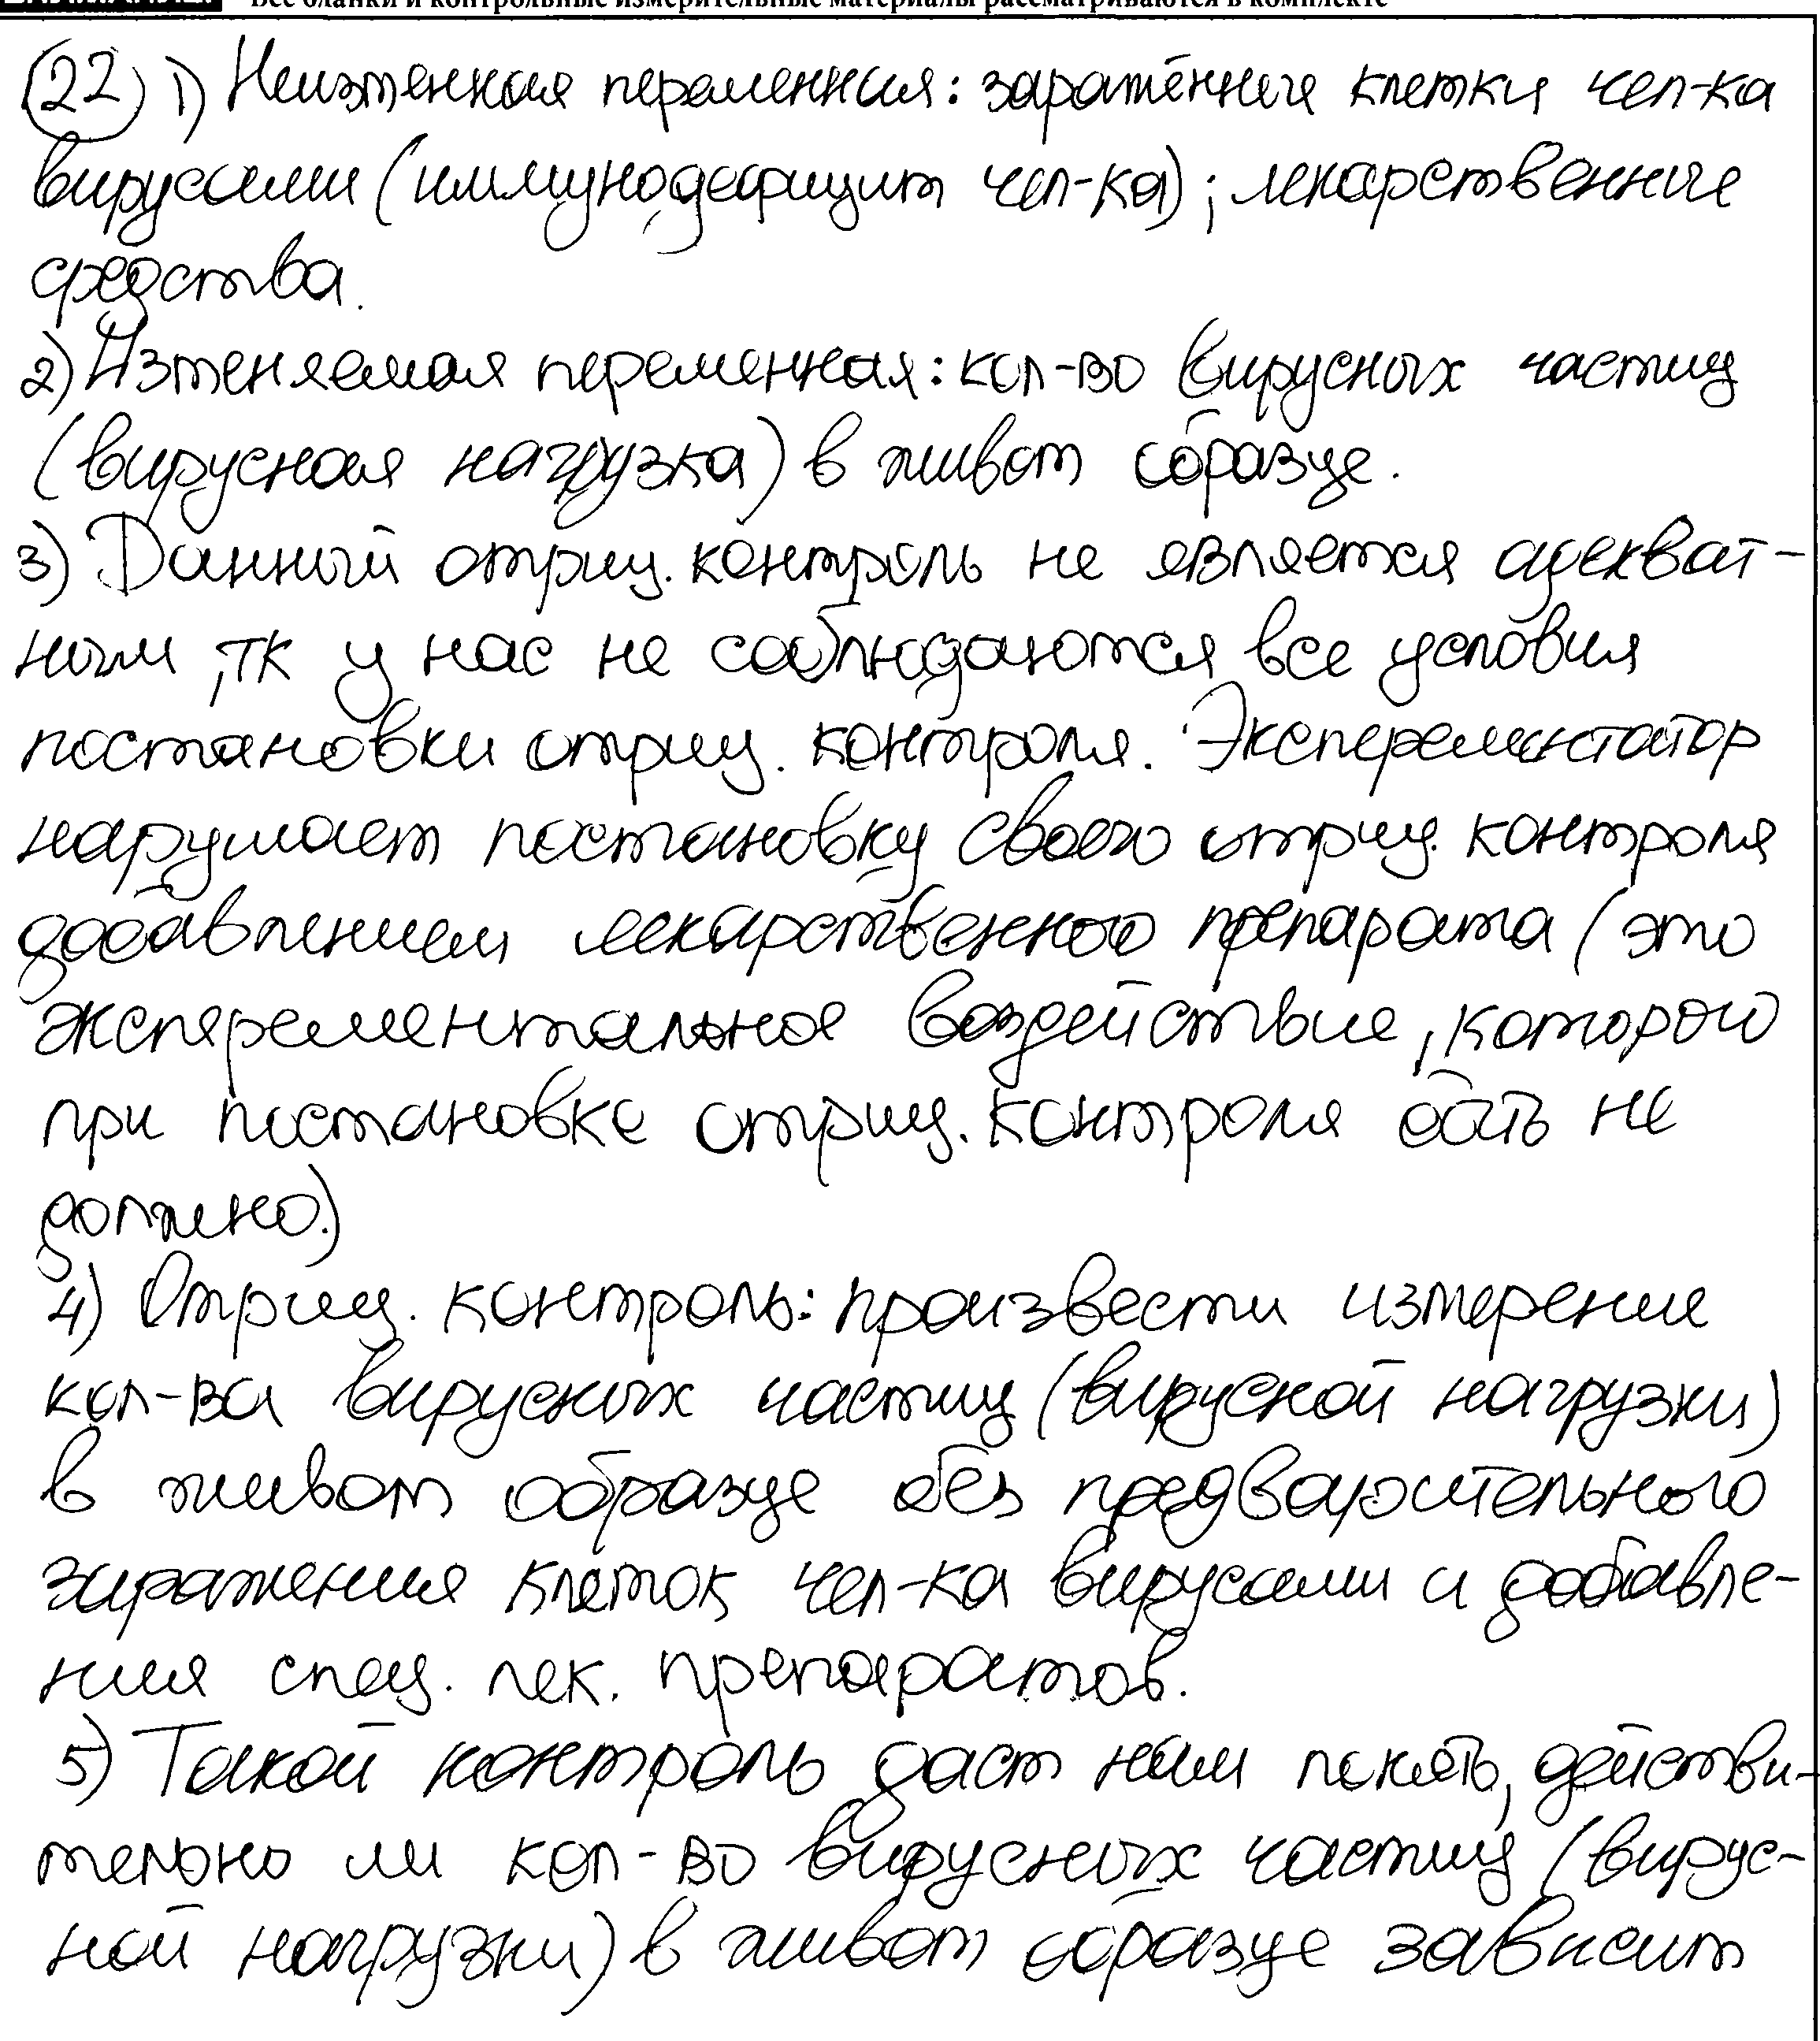 Все бланки и контрольные измерительные материалы рассматриваются в комплекте
(22) 1) Неизменная переменная: заражённые клетки чел-ка
вирусами (иммунодефицит чел-ка); лекарственные
средства.
2) Изменяемая переменная: кол-во вирусных частиц
(вирусная нагрузка) в живом образце.
3) Данный отриц. контроль не является адекват-
ным, тк у нас не соблюдаются все условия
постановки отриц. контроля. Эксперементатор
нарушает постановку своего отриц. контроля
добавлением лекарственного препарата (это
эксперементальное воздействие, которого
при постановке отриц. контроля быть не
должно.)
4) Отриц. контроль: произвести измерение
кол-ва вирусных частиц (вирусной нагрузки)
в живом образце без предварительного
заражения клеток чел-ка вирусами и добавле-
ния спец. лек. препаратов.
5) Такой контроль даст нам понять, действи-
тельно ли кол-во вирусных частиц (вирус-
ной нагрузки) в живом образце зависит